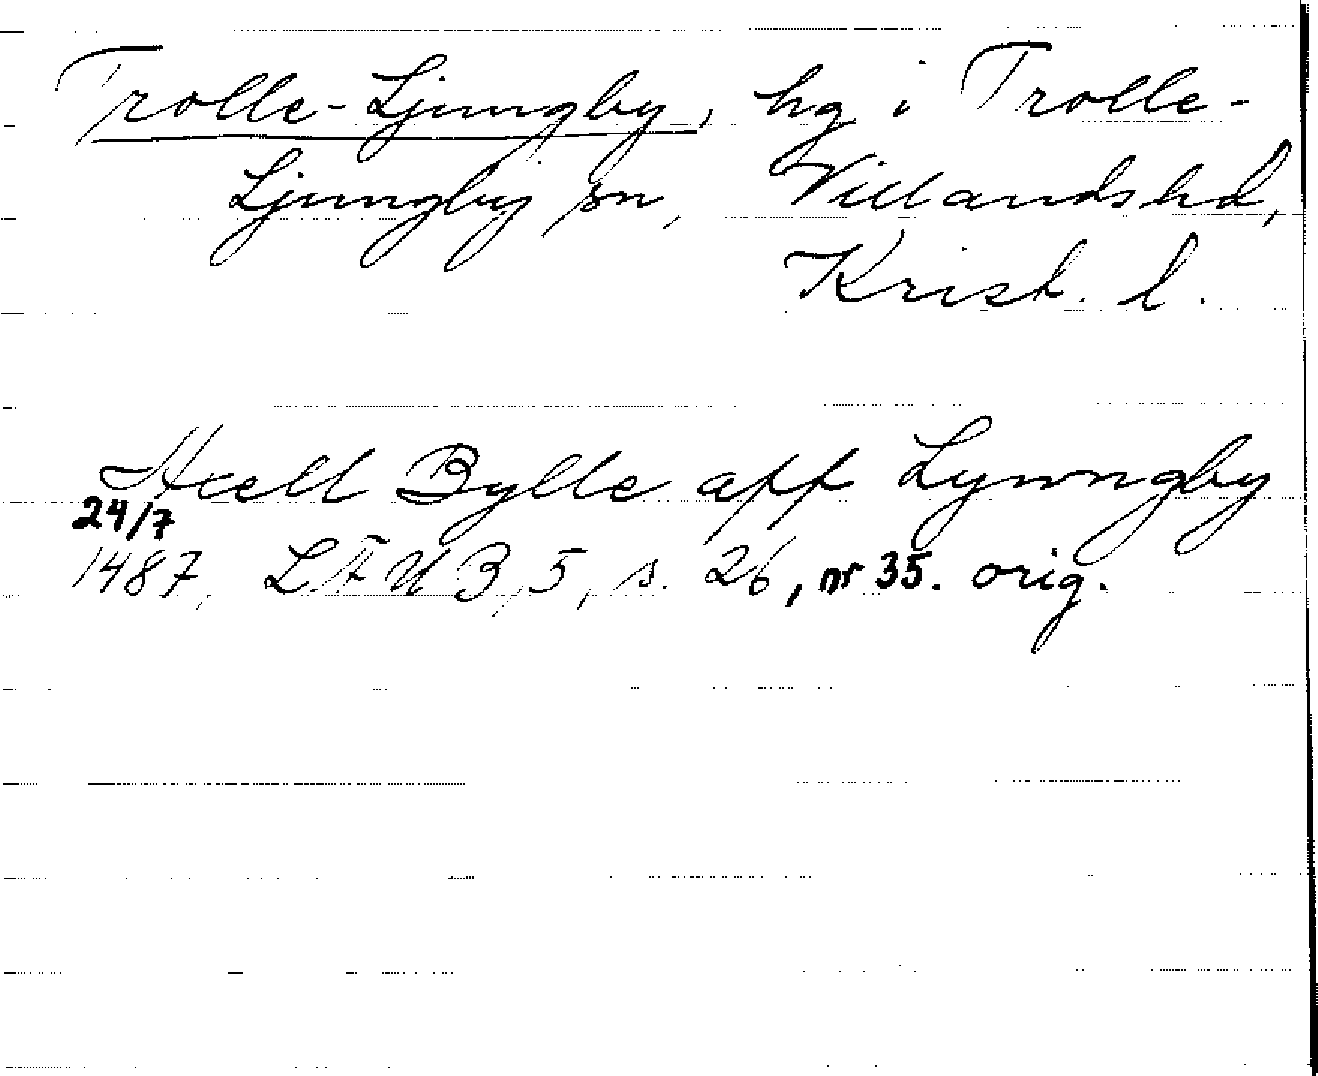 Trolle-Ljungby, hg i Trolle-
Ljungby sn, Villandshd,
Krist. l.
Axell Bylle aff Lywngby
24/7
1487, LÄU 3, 5, s. 26, nr 35. orig.